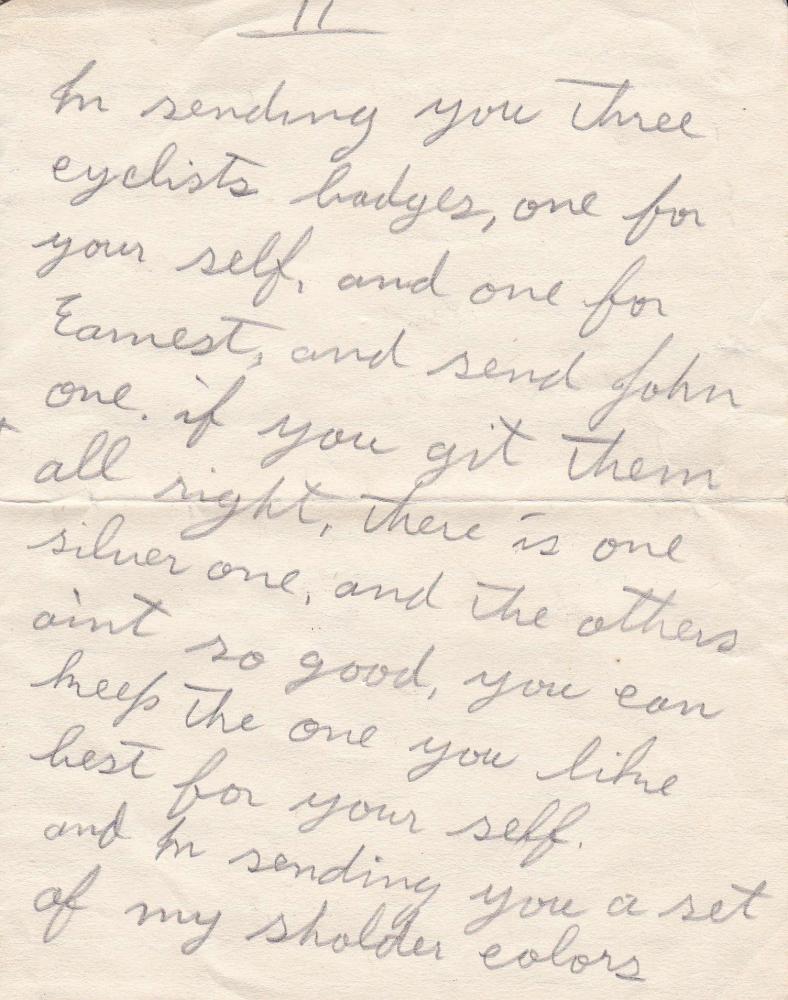 11
Im sending you three
cyclists badges, one for
your self, and one for
Earnest, and send John
one. if you git them
all right, there is one
silver one, and the others
aint so good, you can
keep the one you like
best for your self.
and Im sending you a set
of my sholder colors